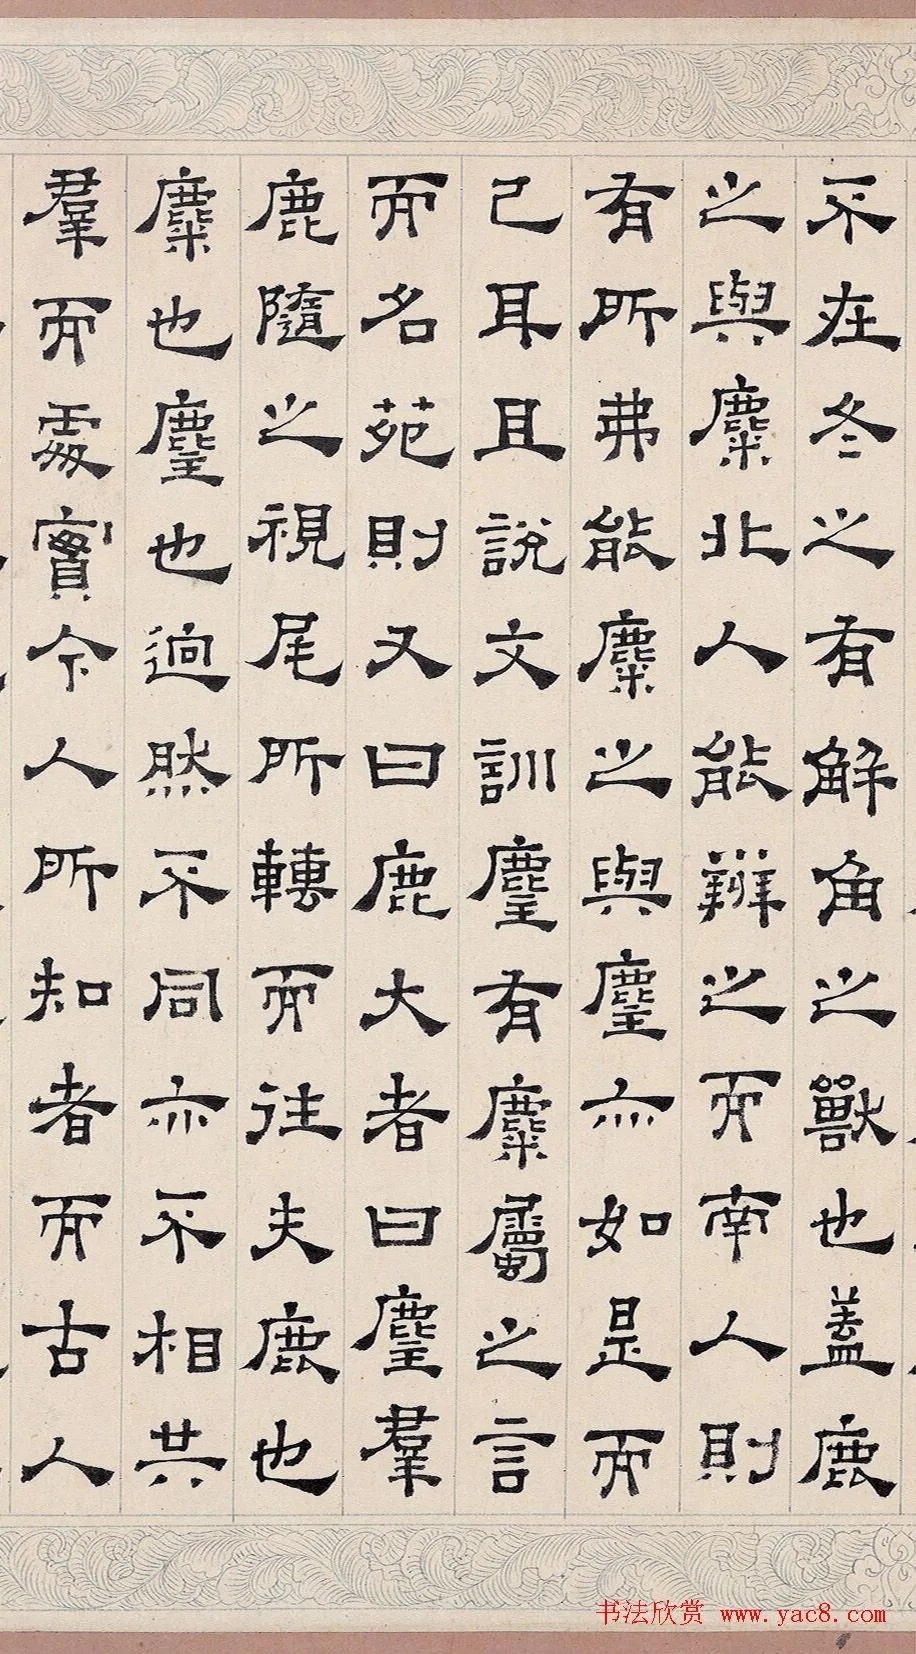 不在冬之有解角之獸也蓋鹿
之與麋北人能辨之而南人則
有所弗能麋之與麈亦如是而
已耳且說文訓麈有麋屬之言
而名苑則又曰鹿大者曰麈羣
鹿隨之視尾所轉而往夫鹿也
麋也麈也迥然不同亦不相共
羣而處實今人所知者而古人
书法欣赏 www.yac8.com